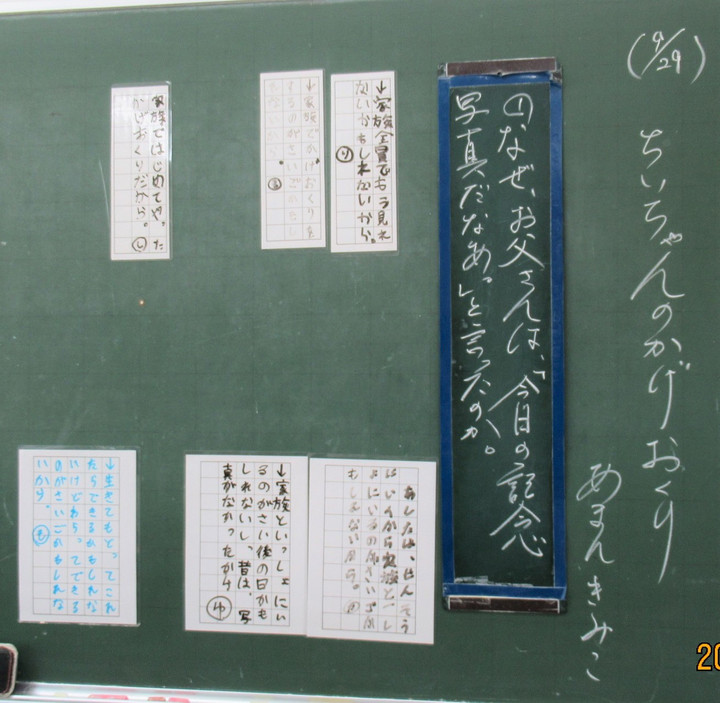 (9/29)
ちいちゃんのかげおくり
あまんきみこ
①なぜ、お父さんは、「今日の記念
写真だなあ。」と言ったのか。
↓家族全員でもう見れ
ないかもしれないから。り
↓家族でかげおくりを
するのがさいご
家族ではじめてやった
かげおくりだから。し
あしたは、せんそう
にいくから家族と一し
ょにいるのがさいごか
もしれないから。
↓家族といっしょにい
るのがさい後の日かも
しれないし、昔は、写
真がなかったから
ゆ
↓生きてもどってこれ
たらできるかもしれな
いけどわらってできる
のがさいごかもしれな
いから。も
20